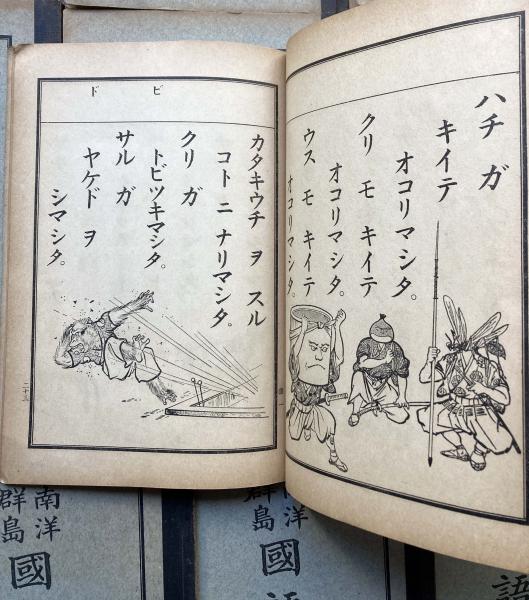 ハチ ガ
キイテ
オコリマシタ。
クリ モ キイテ
オコリマシタ。
ウス モ キイテ
オコリマシタ。
ド ビ
カタキウチ ヲ スル
コト ニ ナリマシタ。
クリ ガ
トビツキマシタ。
サル ガ
ヤケド ヲ
シマシタ。
南洋
群島
國
南洋
群島
國
語
語